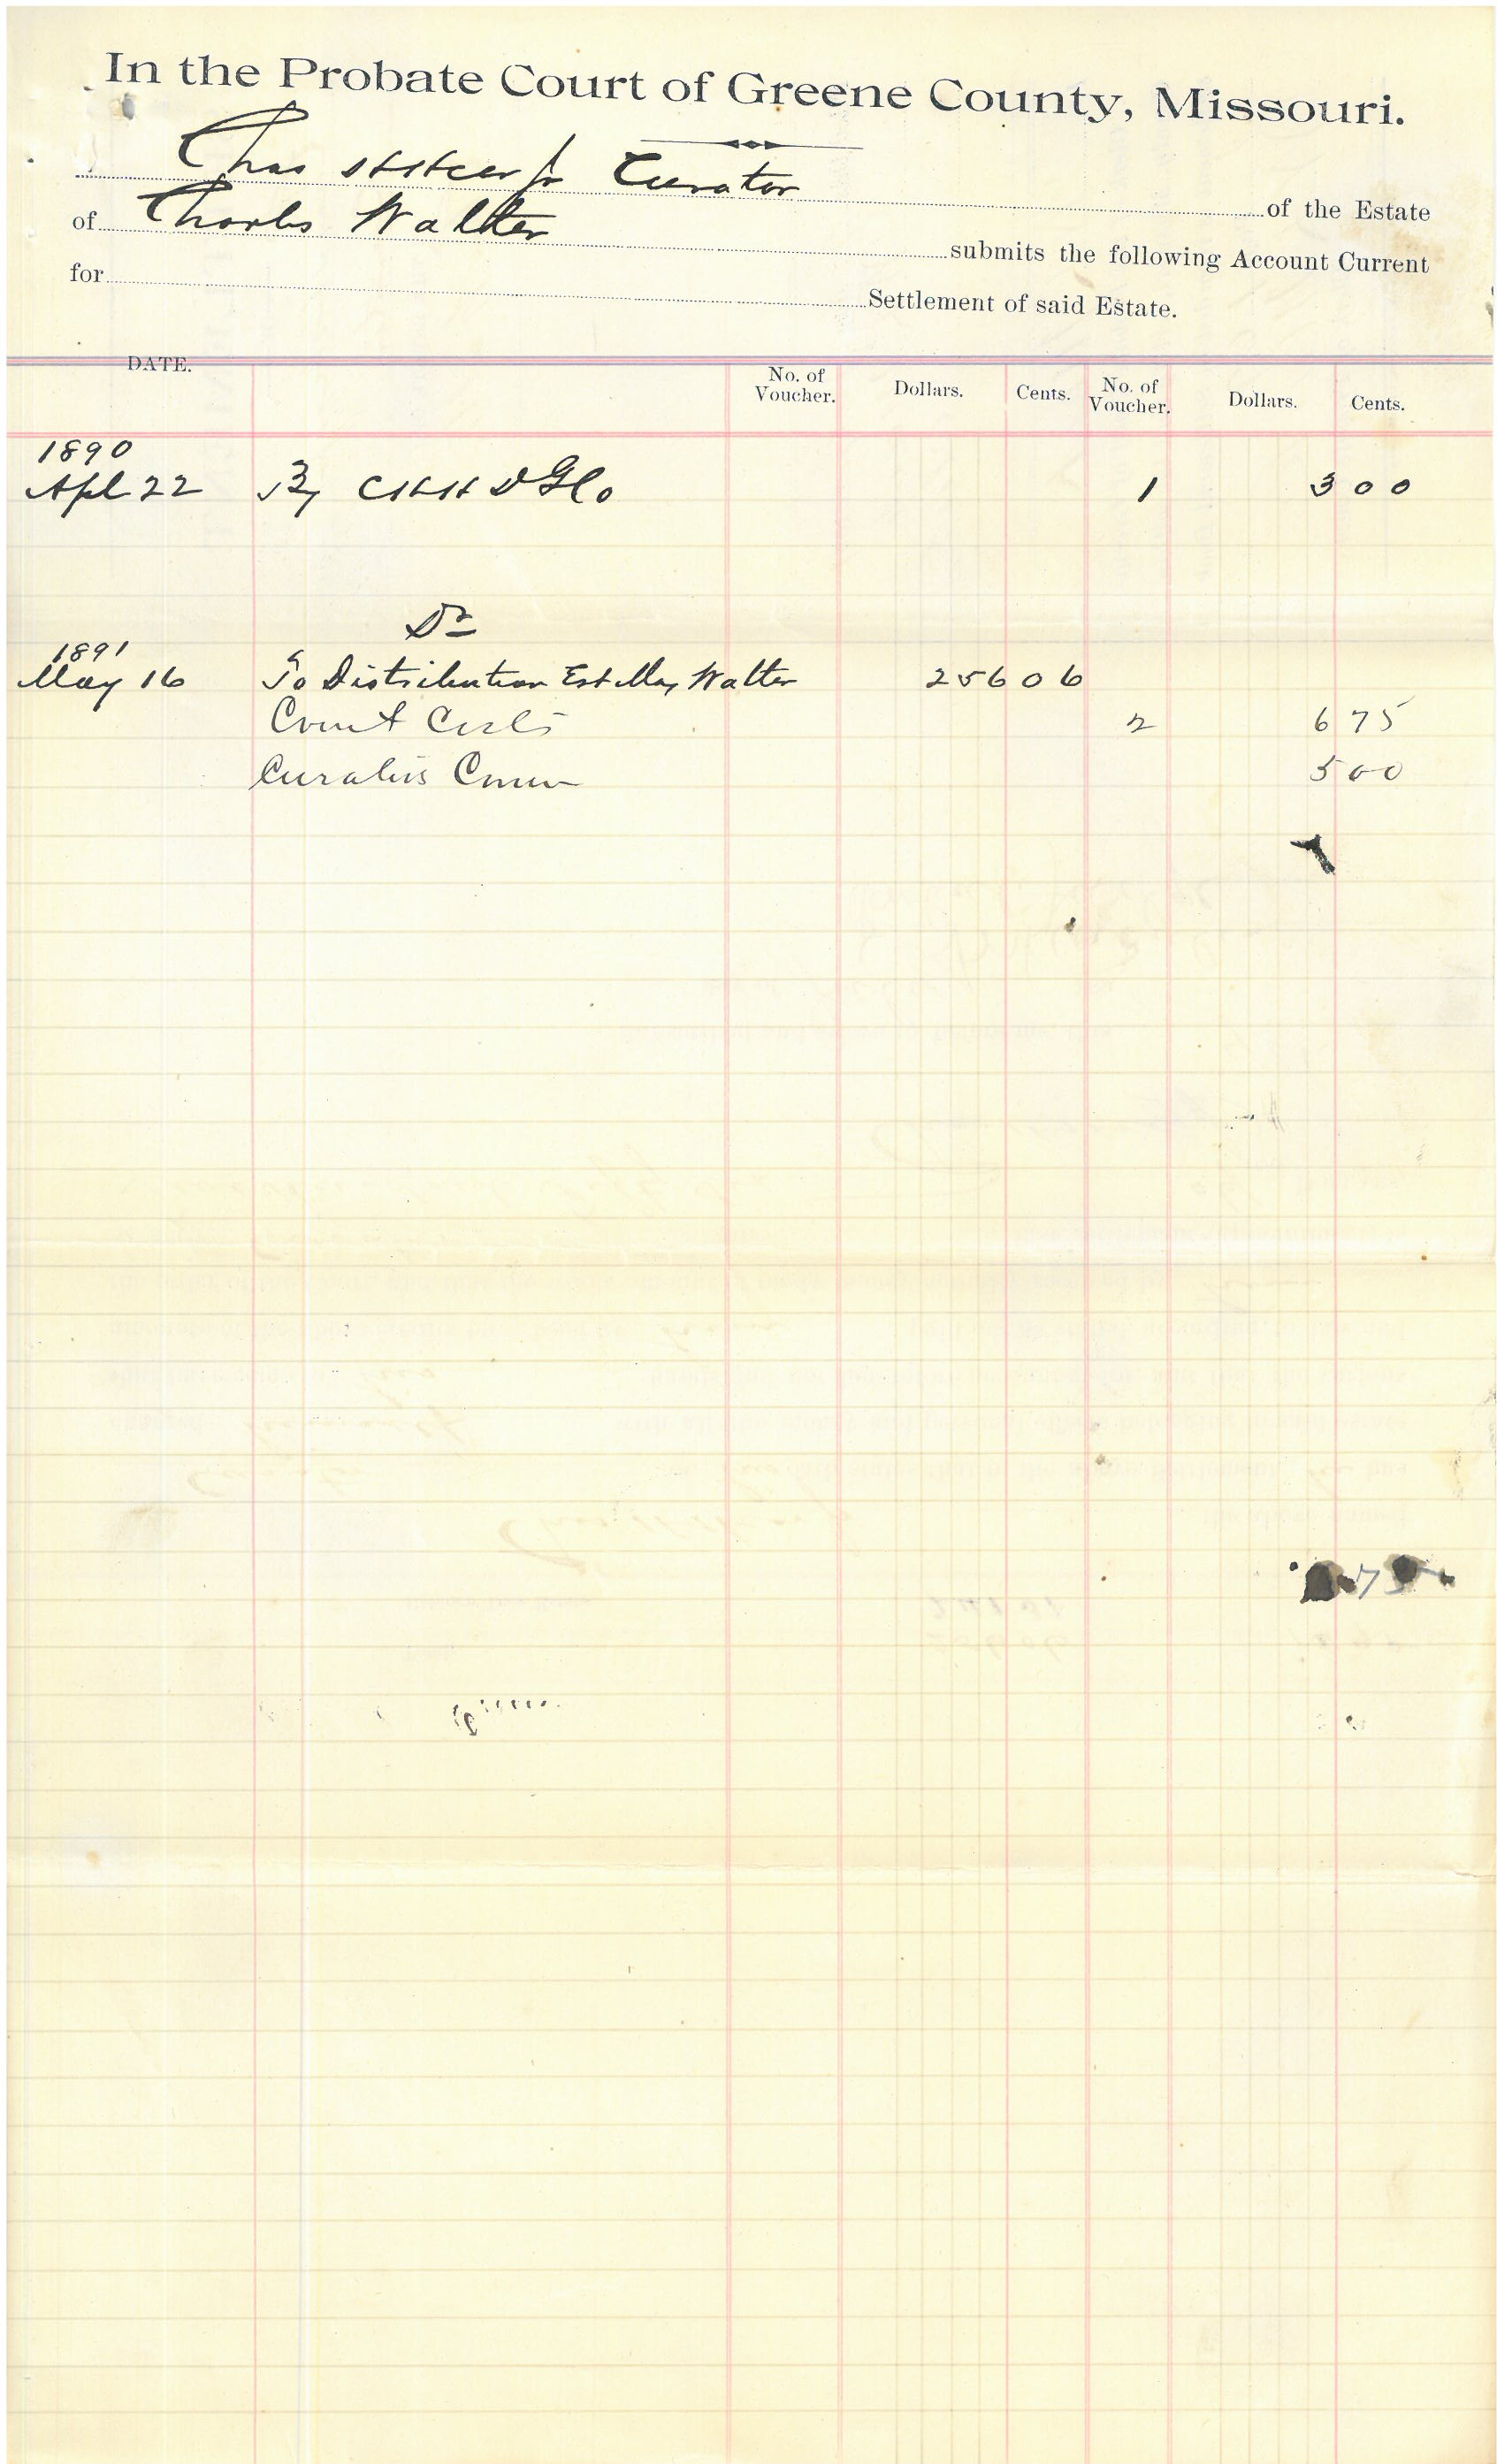 In the Probate Court of Greene County, Missouri.
Chas Curator of the Estate
of Charles Walter submits the following Account Current
for Settlement of said Estate.
DATE. No. of Voucher. Dollars. Cents. No. of Voucher. Dollars. Cents.
1890
Apl 22 By CH&H D G Co 1 3 00
Dr
1891
May 16 To Distribution Est May Walter 256 06
Court Costs 2 6 75
Curators Comm 5 00